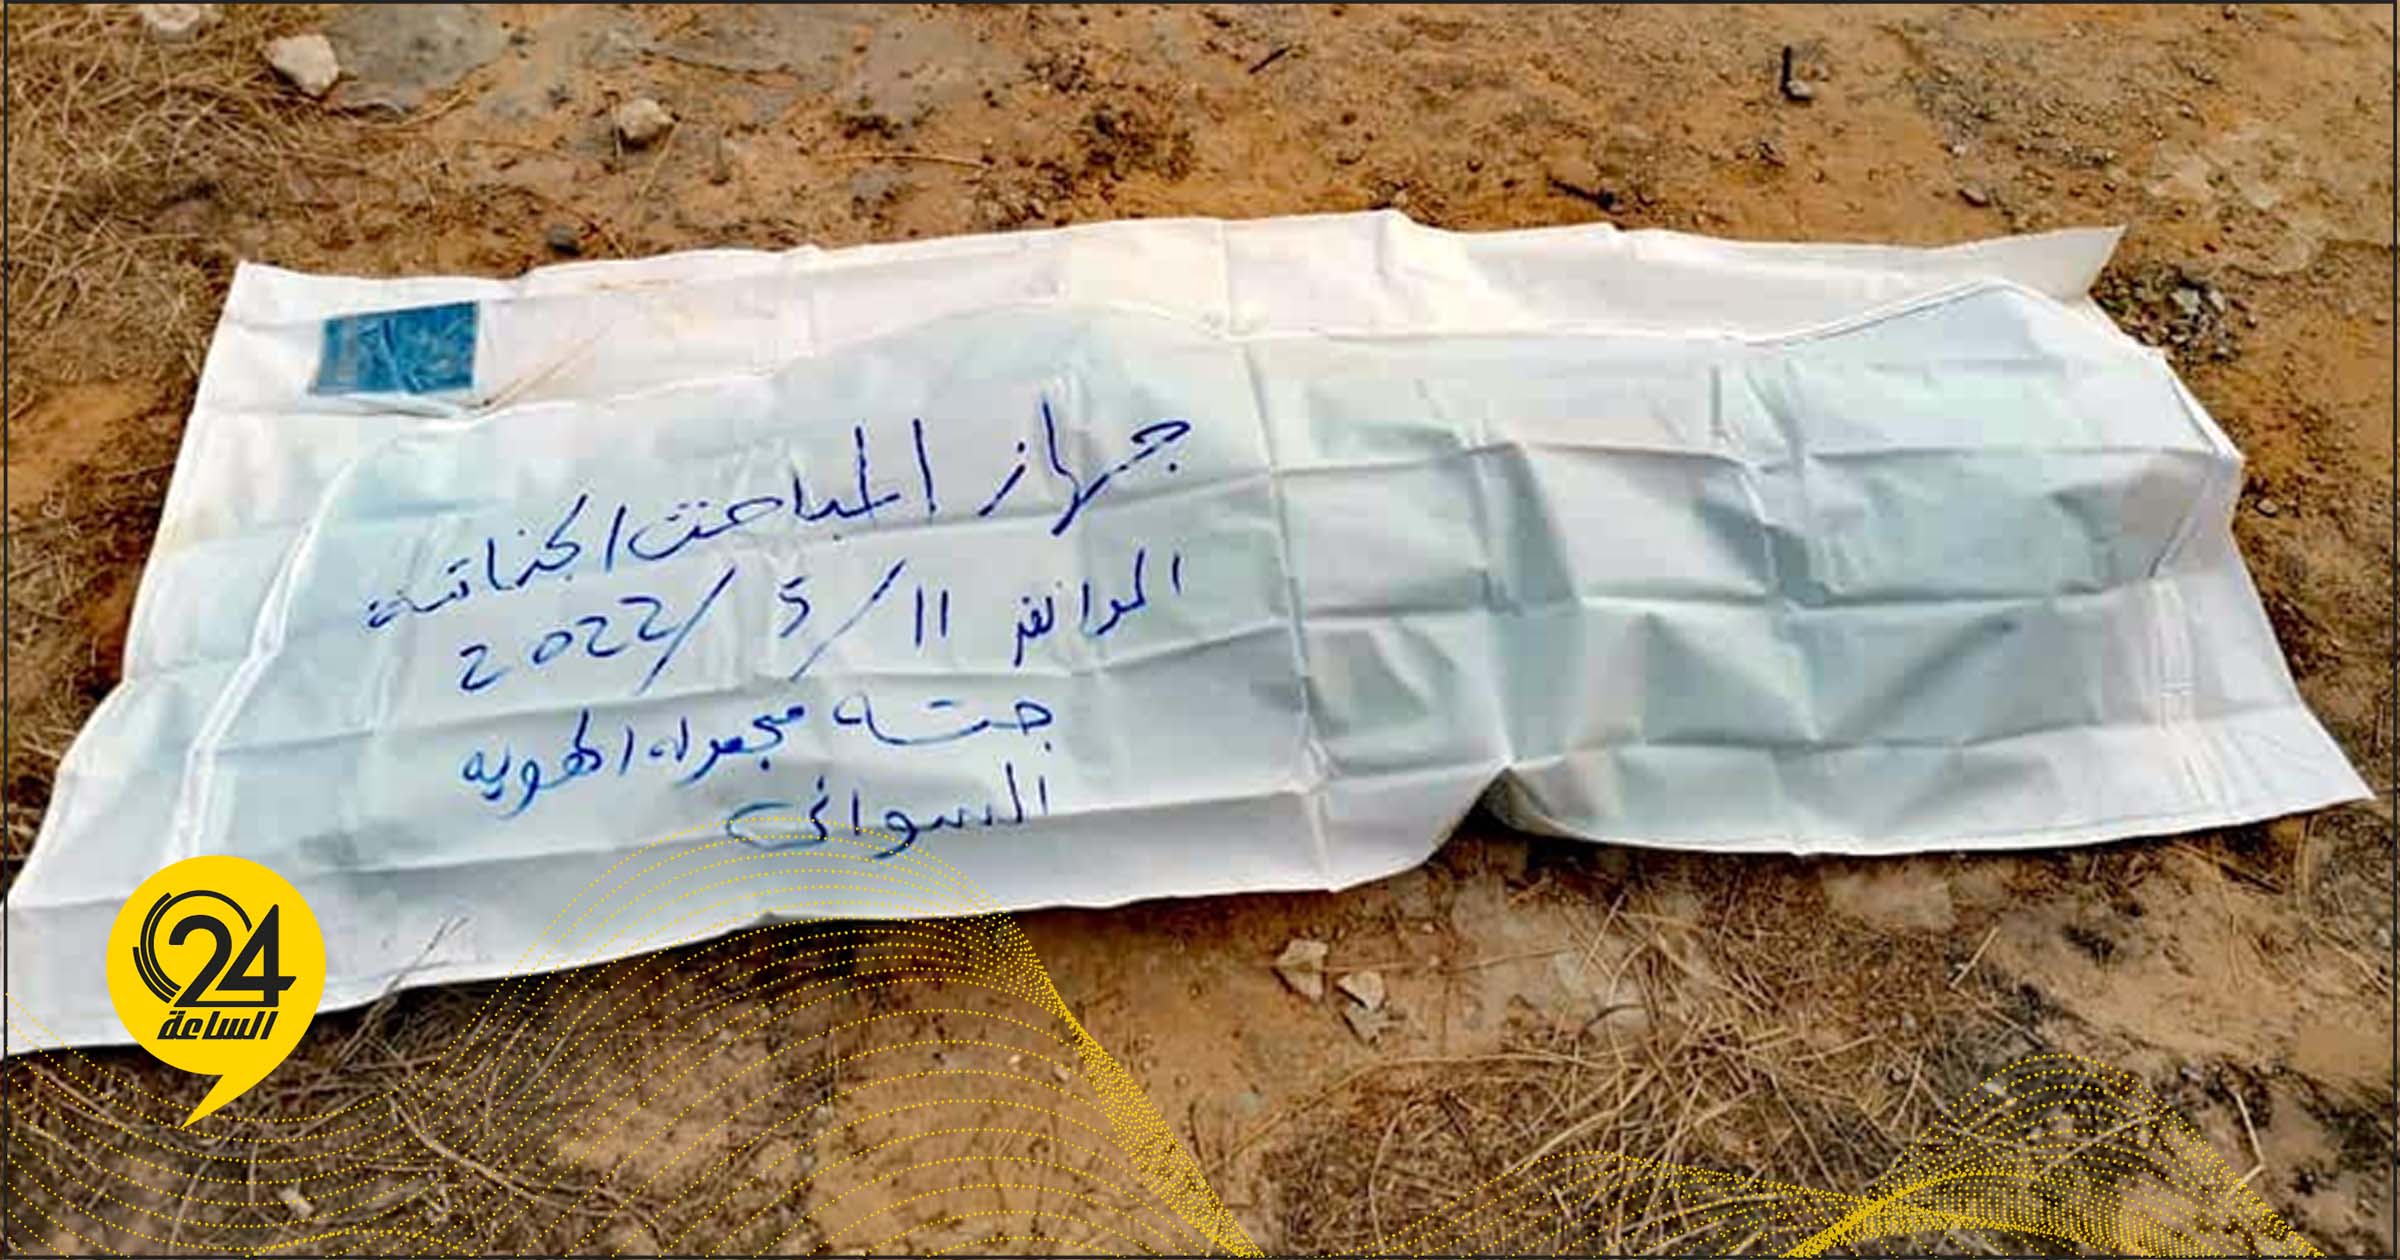 جهاز المباحث الجنائية
الموافق 11/5/2022
جثه مجهولة الهويه
السواني
24
الساعة